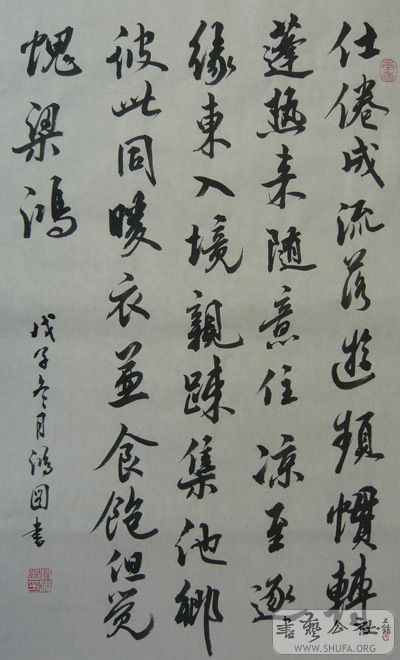 仕倦成流落遊頻慣轉
蓬熱来隨意住涼至逐
緣東入境親疎集他鄉
彼此同暖衣兼食飽但觉
愧梁鴻
戊子冬月鴻图書
書藝公社
WWW.SHUFA.ORG